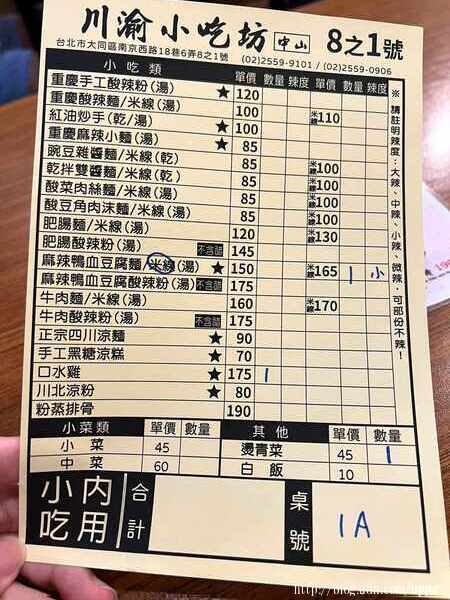 川渝小吃坊 中山 8之1號
台北市大同區南京西路18巷6弄8之1號 (02)2559-9101 / (02)2559-0906
小吃類 單價 數量 辣度 單價 數量 辣度
重慶手工酸辣粉(湯) ★ 120
重慶酸辣麵/米線(湯) 100 米線110
紅油炒手(乾/湯) ★ 100
重慶麻辣小麵(湯) ★ 85
豌豆雜醬麵/米線(乾) 85 米線100
乾拌雙醬麵/米線(乾) 85 米線100
酸菜肉絲麵/米線(湯) 85 米線100
酸豆角肉沫麵/米線(湯) 85 米線100
肥腸麵/米線(湯) 120 米線130
肥腸酸辣粉(湯) 不含醋 145
麻辣鴨血豆腐麵/米線(湯) ★ 150 米線165 1 小
麻辣鴨血豆腐酸辣粉(湯) 不含醋 175
牛肉麵/米線(湯) 160 米線170
牛肉酸辣粉(湯) 不含醋 175
正宗四川涼麵 ★ 90
手工黑糖涼糕 ★ 70
口水雞 ★ 175 1
川北涼粉 ★ 80
粉蒸排骨 190
※請註明辣度：大辣、中辣、小辣、微辣，可部份不辣！
小菜類 單價 數量 其他 單價 數量
小菜 45 燙青菜 45 1
中菜 60 白飯 10
小吃 內用 合計 桌號 1A